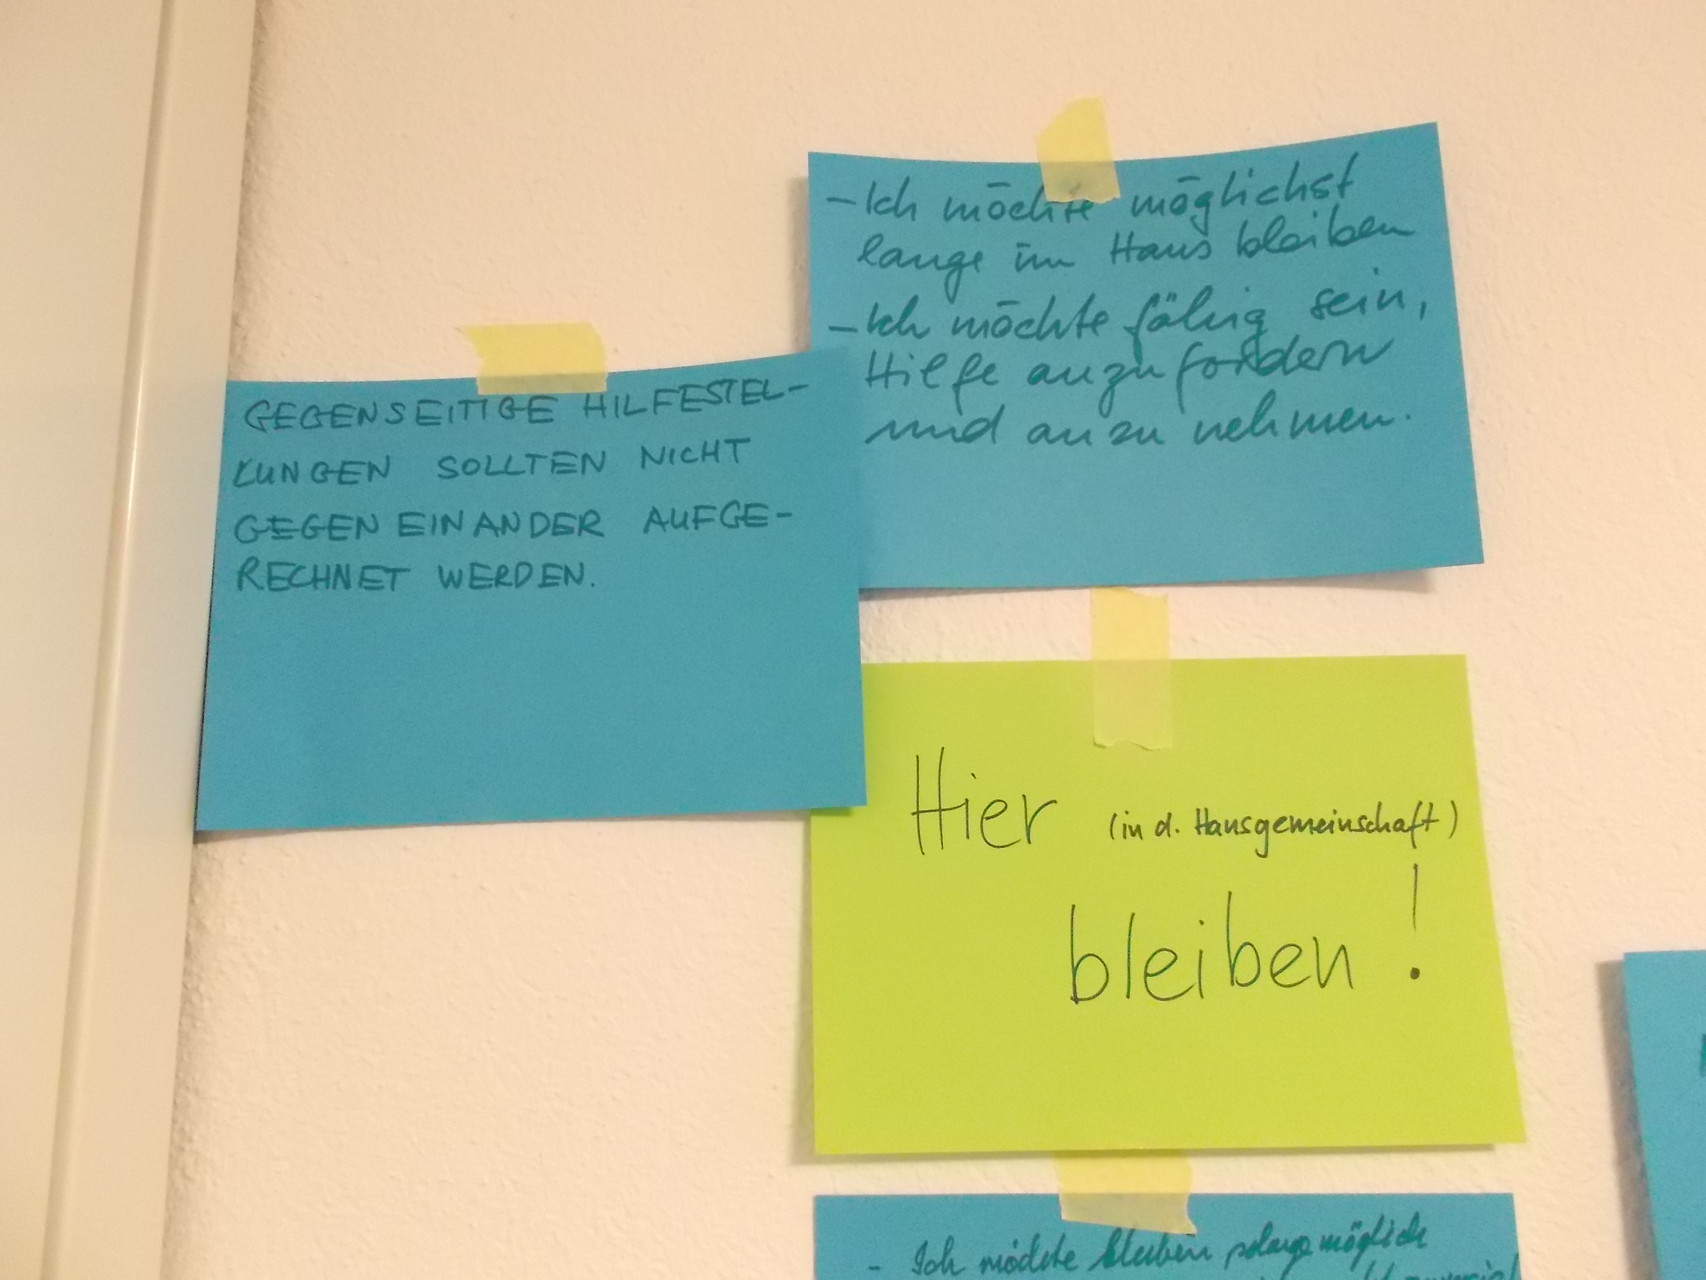 - Ich möchte möglichst
lange im Haus bleiben
- Ich möchte fähig sein,
Hilfe anzufordern
und anzunehmen.
GEGENSEITIGE HILFESTEL-
LUNGEN SOLLTEN NICHT
GEGENEINANDER AUFGE-
RECHNET WERDEN.
Hier (in d. Hausgemeinschaft)
bleiben!
- Ich möchte bleiben solange möglich